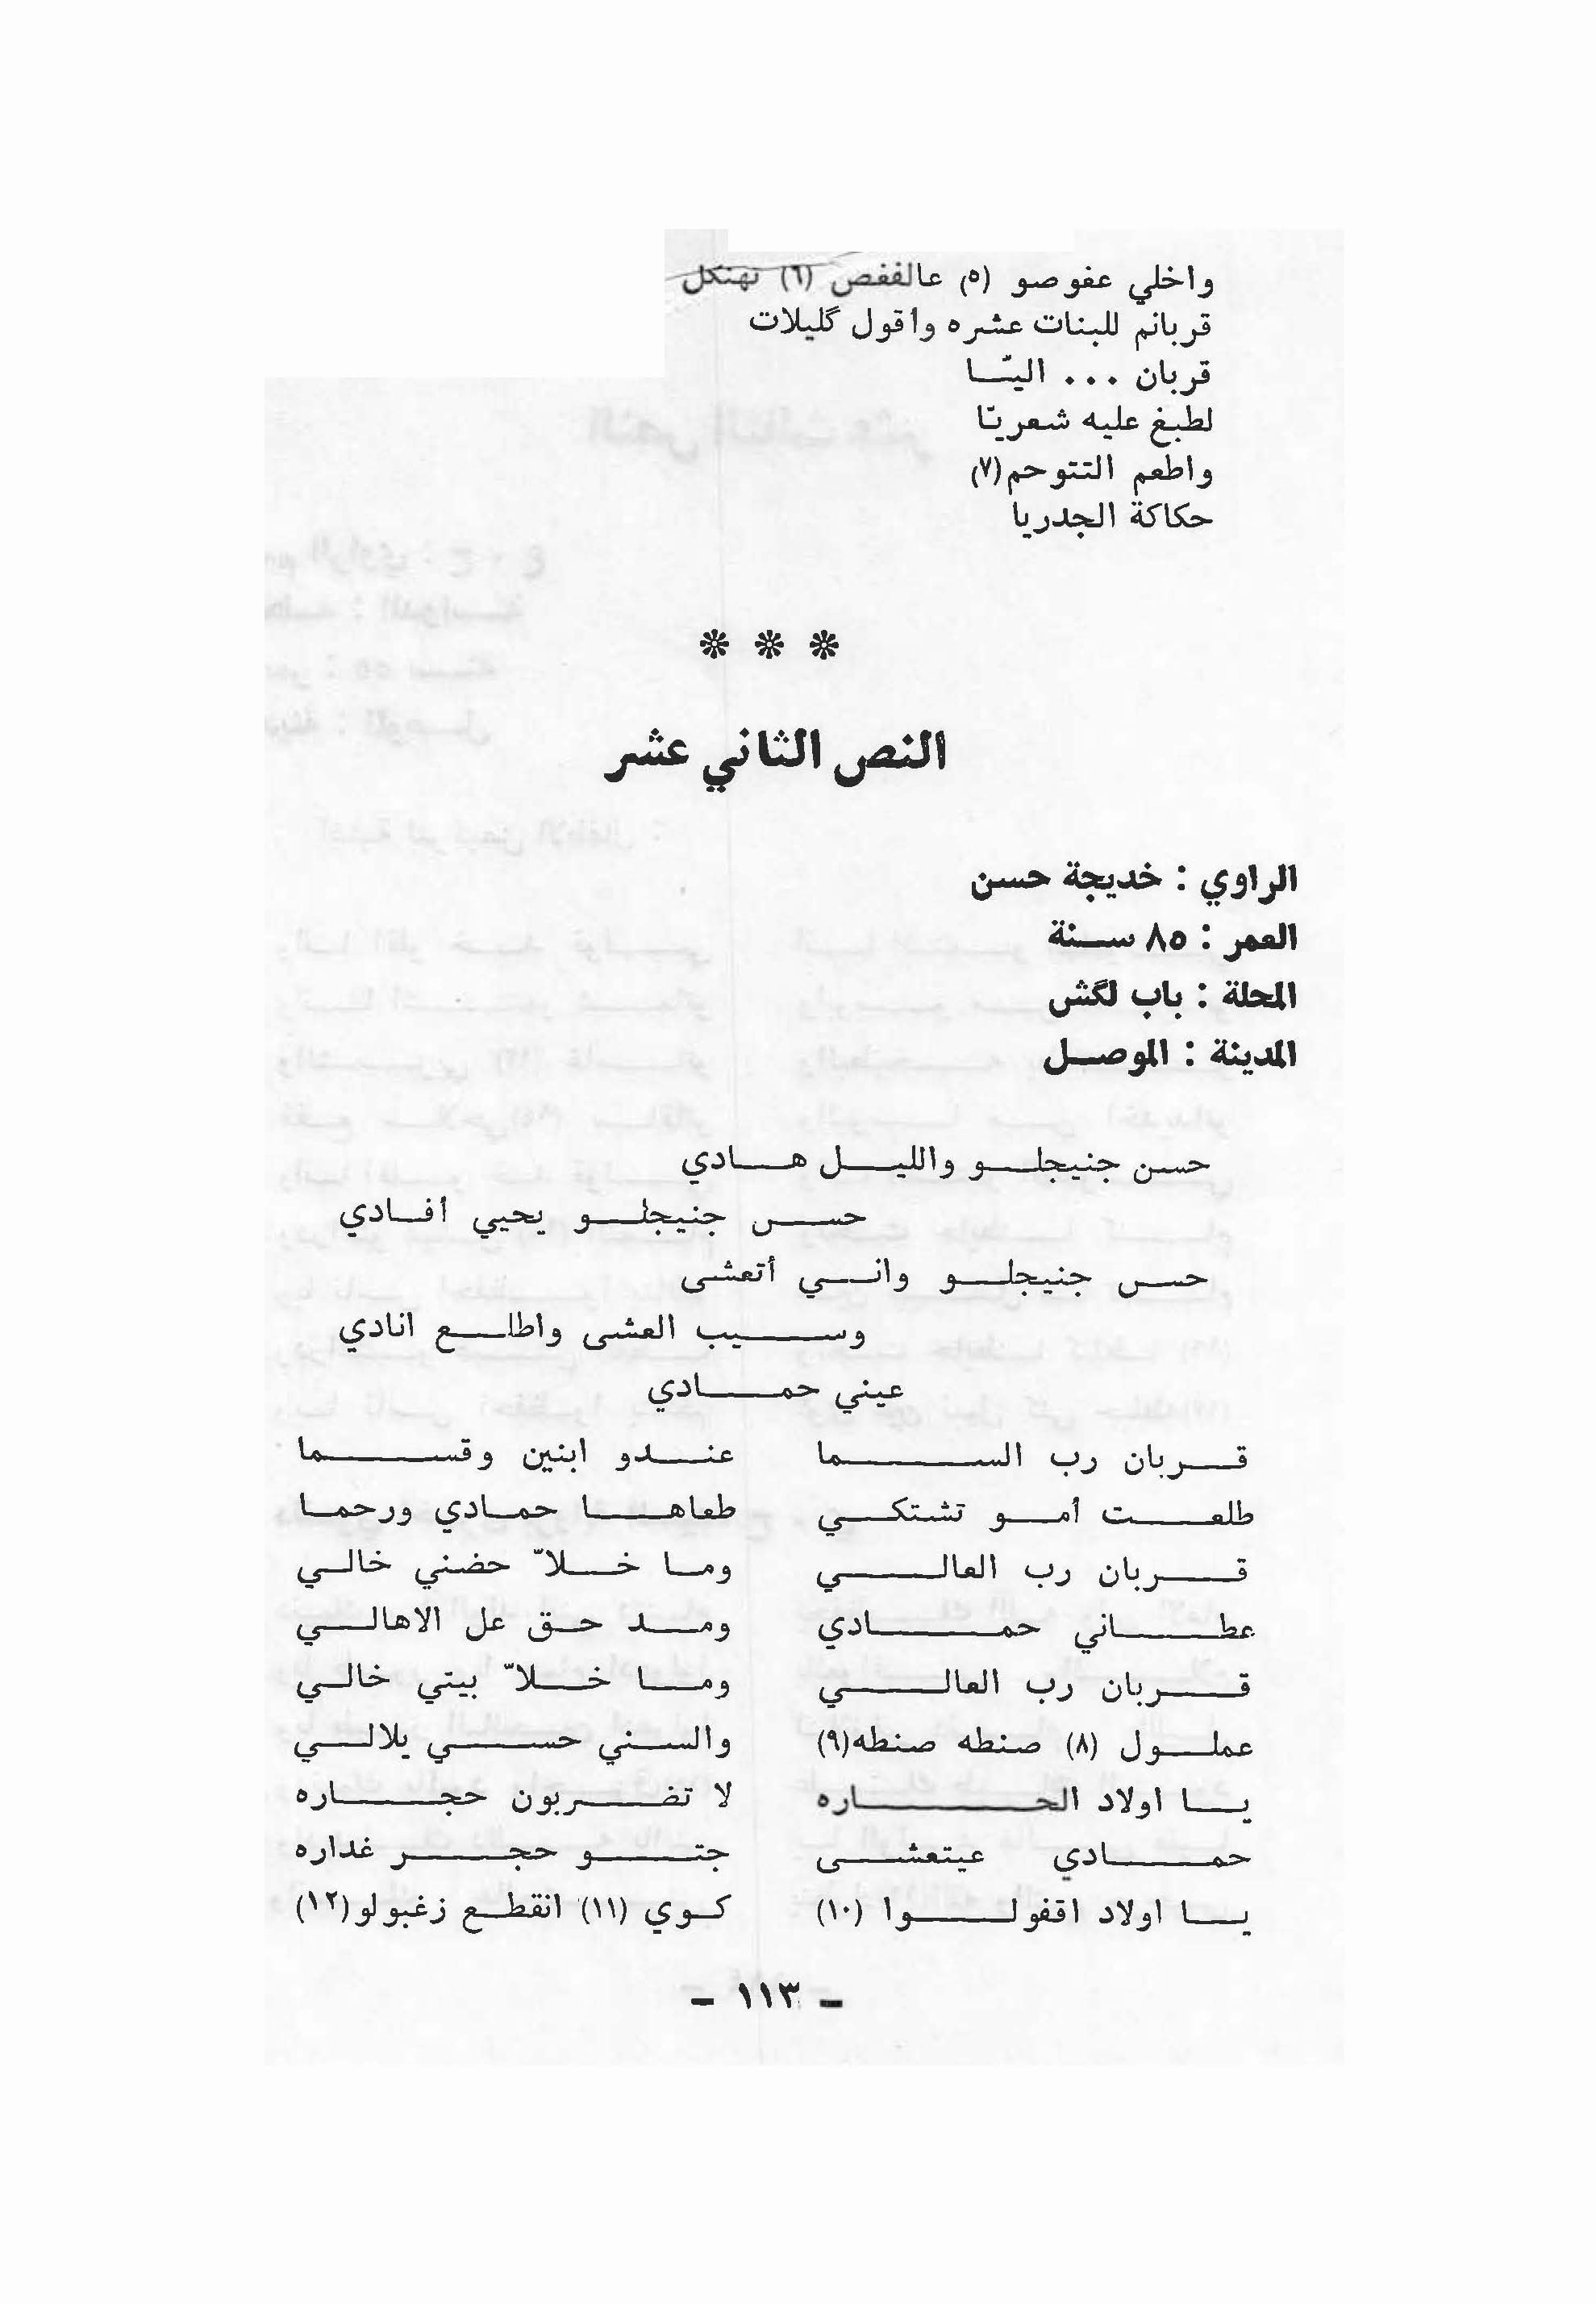 واخلي عفوصو (٥) عالففص (٦) تهنكل
قربانم للبنات عشره وأقول گليلات
قربان ... اليّا
لطبغ عليه شعريّا
واطعم التتوحم(٧)
حكاكة الجدريا
* * *
النص الثاني عشر
الراوي : خديجة حسن
العمر : ٨٥ سنة
المحلة : باب لگش
المدينة : الموصل
حسن جنيجلو والليل هادي
حس جنيجلو يحيي أفادي
حس جنيجلو واني أتعشى
وسيب العشى واطلع انادي
عيني حمادي
قربان رب السما عندو ابنين وقسما
طلعت أمو تشتكي طعاها حمادي ورحما
قربان رب العالي وما خلاّ حضني خالي
عطاني حمادي ومد حق عل الاهالي
قربان رب العالي وما خلاّ بيتي خالي
عملول (٨) صنطه صنطه(٩) والسني حسي يلالي
يا اولاد الحاره لا تضربون حجاره
حمادي عيتعشى جتو حجر غداره
يا اولاد اقفولوا (١٠) كوي (١١) انقطع زغبولو(١٢)
- ١١٣ -